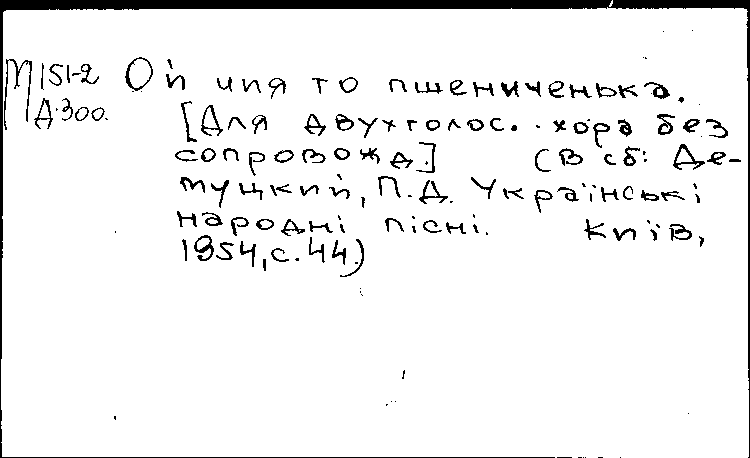 М151-2 Ой чия то пшениченька.
Д.300. [Для двухголос. хора без
сопровожд.] (В сб: Де-
муцкий, П.Д. Українські
народні пісні. Київ,
1954, с. 44.)